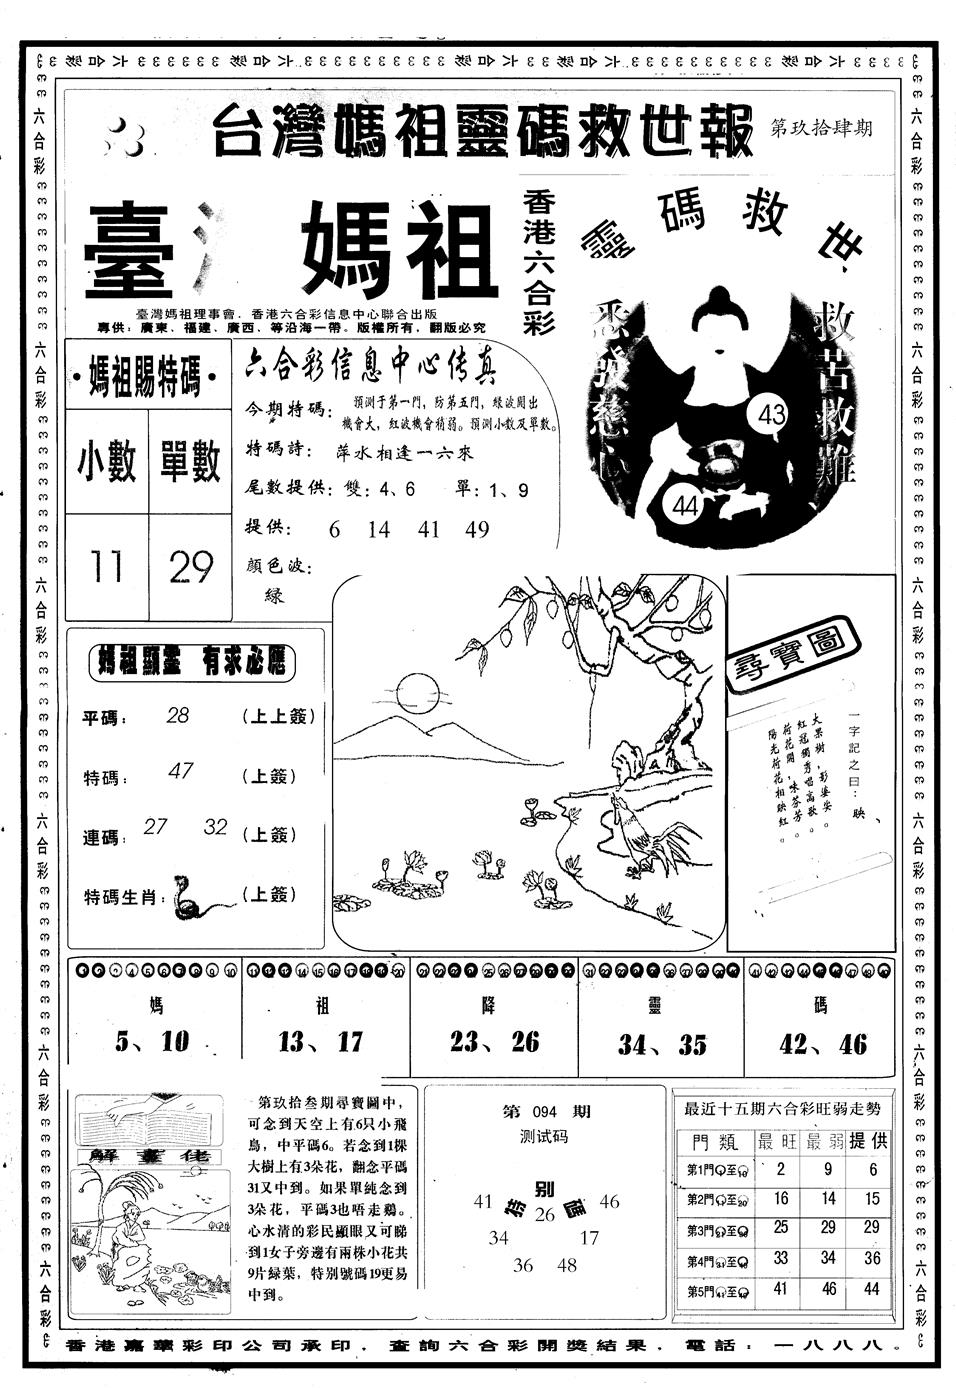 台灣媽祖靈碼救世報
第玖拾肆期
臺灣 媽祖
香港六合彩
靈碼救世
臺灣媽祖理事會．香港六合彩信息中心聯合出版
專供：廣東、福建、廣西、等沿海一帶。版權所有，翻版必究
悉發慈心
救苦救難
43
44
·媽祖賜特碼·
小數 單數
11 29
六合彩信息中心传真
今期特碼：預測于第一門，防第五門，綠波開出
機會大，紅波機會稍弱。預測小數及單數。
特碼詩：萍水相逢一六來
尾數提供：雙：4、6 單：1、9
提供： 6 14 41 49
顏色波：
綠
媽祖顯靈 有求必應
平碼： 28 (上上簽)
特碼： 47 (上簽)
連碼： 27 32 (上簽)
特碼生肖： (上簽)
尋寶圖
一字記之曰：映
大果樹，影婆娑。
紅冠獨秀唱高歌。
荷花開，味芬芳。
陽光荷花相映紅。
媽 祖 降 靈 碼
5、10 13、17 23、26 34、35 42、46
解畫佬
第玖拾叁期尋寶圖中，
可念到天空上有6只小飛
鳥，中平碼6。若念到1棵
大樹上有3朵花，翻念平碼
31又中到。如果單純念到
3朵花，平碼3也唔走鷄。
心水清的彩民顯眼又可睇
到1女子旁邊有兩株小花共
9片緑葉，特别號碼19更易
中到。
第 094 期
测试码
特别碼
41 26 46
34 17
36 48
最近十五期六合彩旺弱走勢
門類 最旺 最弱 提供
第1門①至⑩ 2 9 6
第2門⑪至⑳ 16 14 15
第3門㉑至㉚ 25 29 29
第4門㉛至㊵ 33 34 36
第5門㊶至㊾ 41 46 44
香港嘉華彩印公司承印．查詢六合彩開獎結果．電話：一八八八。